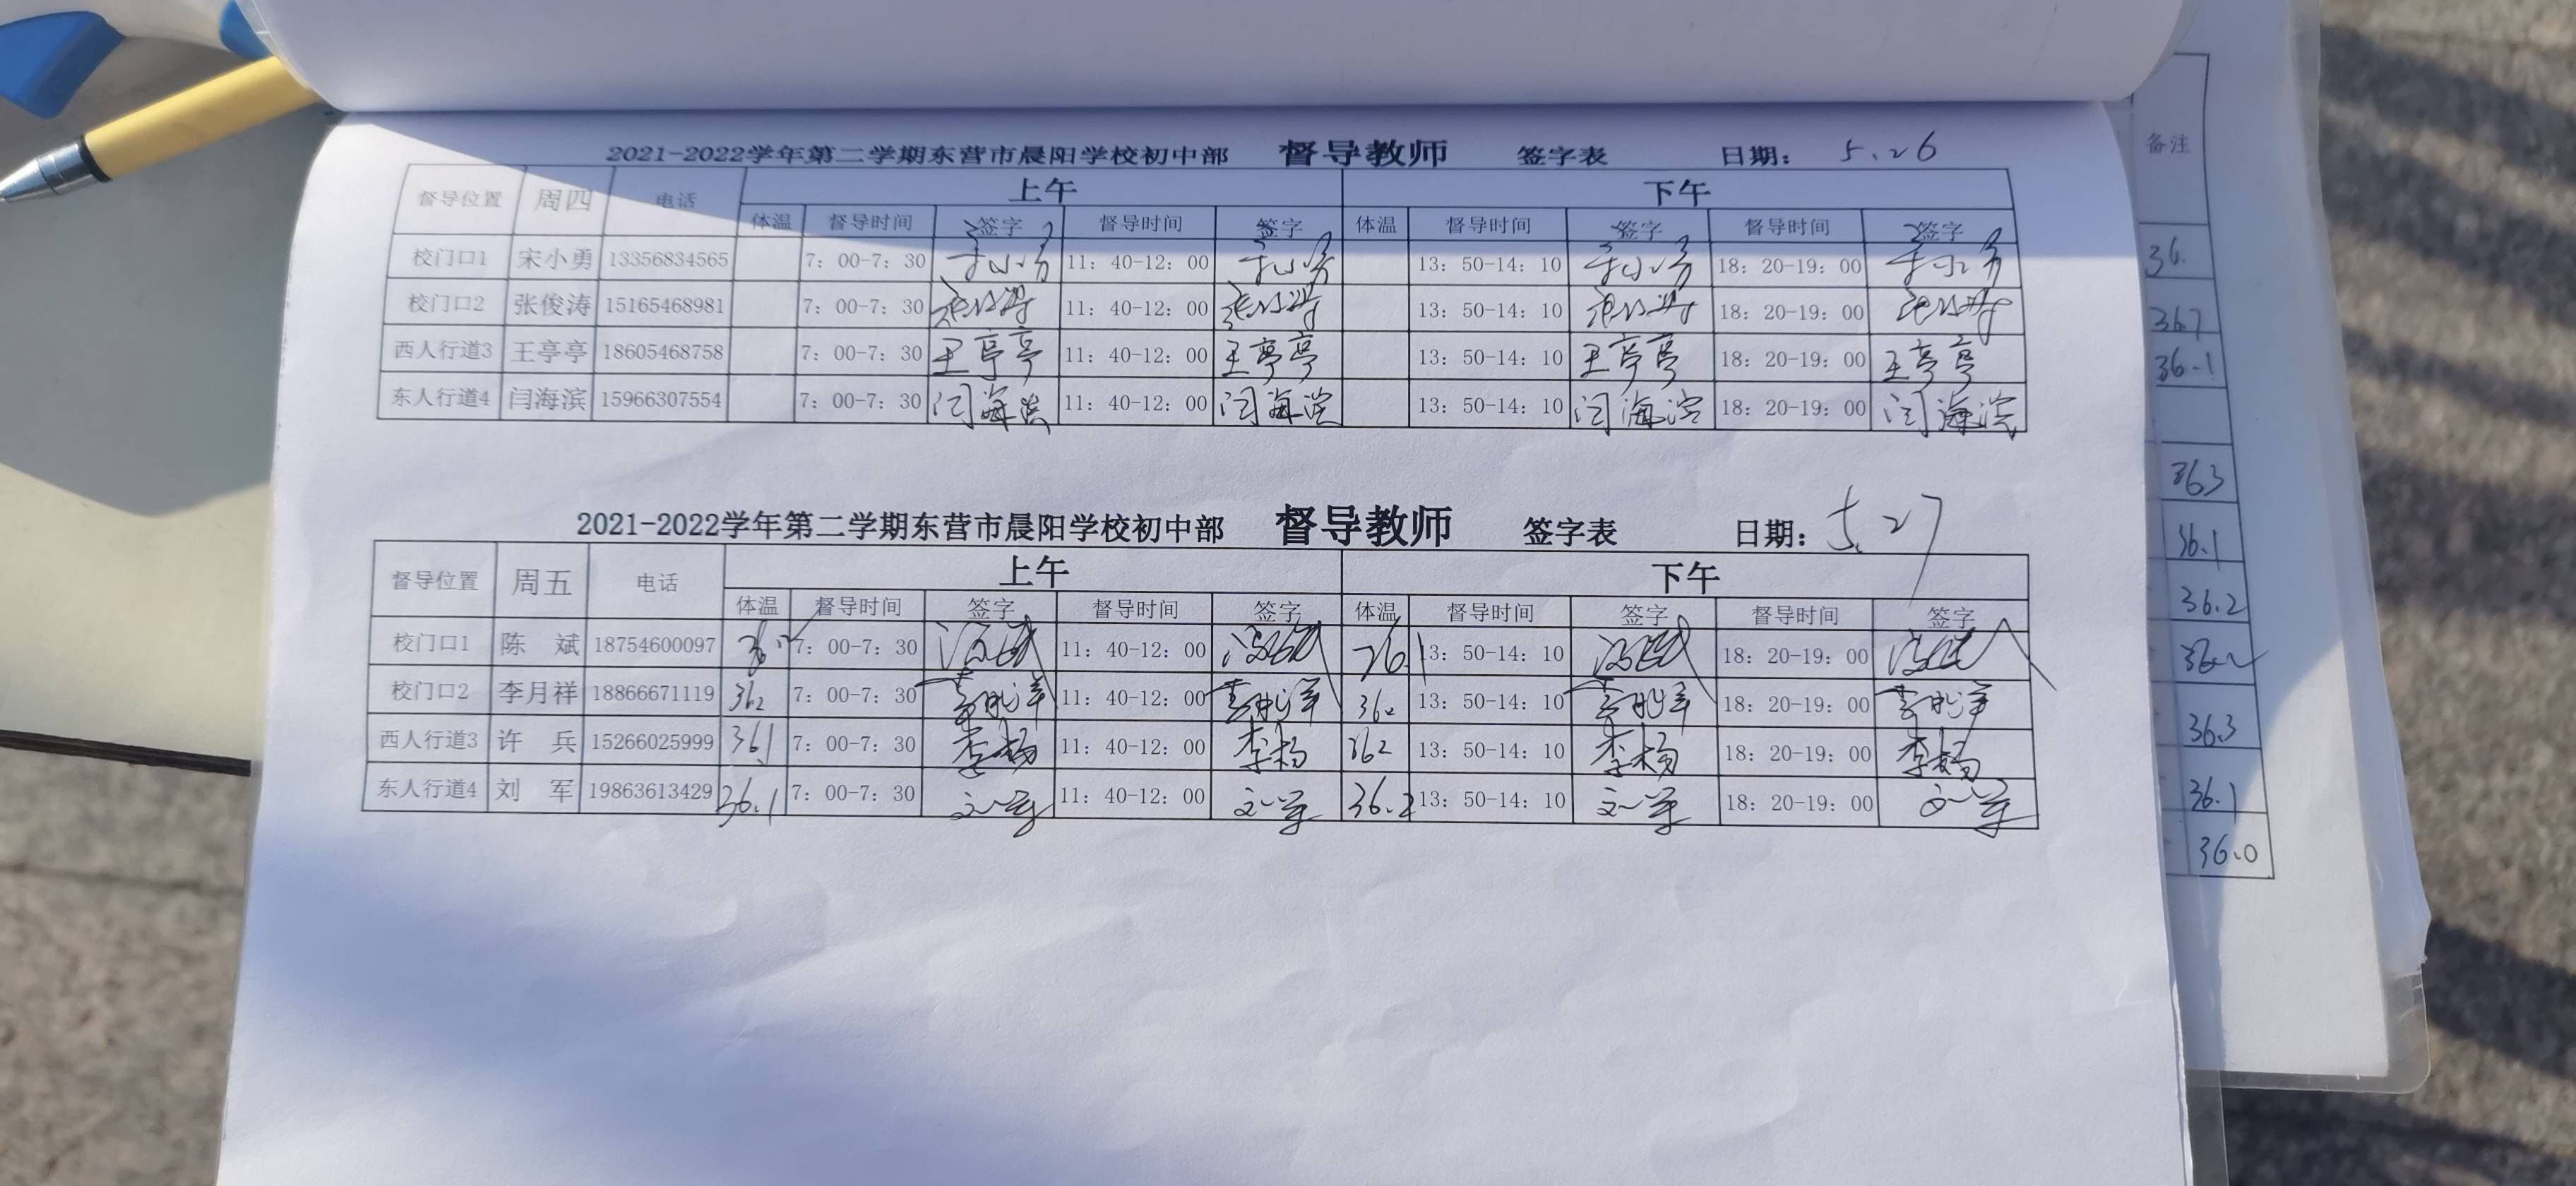 2021-2022学年第二学期东营市晨阳学校初中部 督导教师 签字表 日期: 5.26
督导位置 周四 电话 上午 下午
体温 督导时间 签字 督导时间 签字 体温 督导时间 签字 督导时间 签字
校门口1 宋小勇 13356834565 7:00-7:30 11:40-12:00 13:50-14:10 18:20-19:00
校门口2 张俊涛 15165468981 7:00-7:30 11:40-12:00 13:50-14:10 18:20-19:00
西人行道3 王亭亭 18605468758 7:00-7:30 王亭亭 11:40-12:00 王亭亭 13:50-14:10 王亭亭 18:20-19:00 王亭亭
东人行道4 闫海滨 15966307554 7:00-7:30 闫海滨 11:40-12:00 闫海滨 13:50-14:10 闫海滨 18:20-19:00 闫海滨
2021-2022学年第二学期东营市晨阳学校初中部 督导教师 签字表 日期: 5.27
督导位置 周五 电话 上午 下午
体温 督导时间 签字 督导时间 签字 体温 督导时间 签字 督导时间 签字
校门口1 陈 斌 18754600097 7:00-7:30 11:40-12:00 13:50-14:10 18:20-19:00
校门口2 李月祥 18866671119 362 7:00-7:30 李月祥 11:40-12:00 李月祥 362 13:50-14:10 李月祥 18:20-19:00 李月祥
西人行道3 许 兵 15266025999 36.1 7:00-7:30 李杨 11:40-12:00 李杨 362 13:50-14:10 李杨 18:20-19:00 李杨
东人行道4 刘 军 19863613429 36.1 7:00-7:30 刘军 11:40-12:00 刘军 36.2 13:50-14:10 刘军 18:20-19:00 刘军
备注
36.
36.7
36.1
363
36.1
36.2
36.2
36.3
36.1
36.0